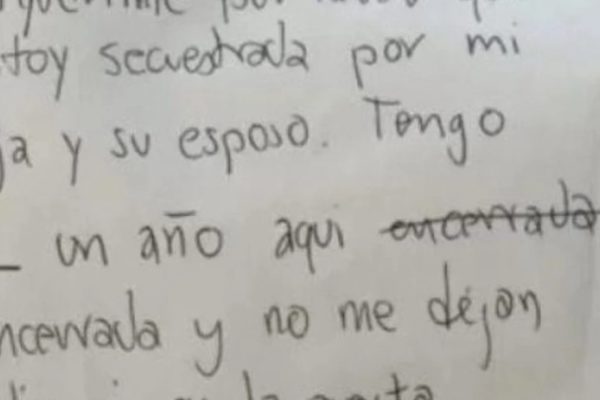 toy secuestrada por mi
ja y su esposo. Tengo
un año aqui encerrada
ncerrada y no me dejan